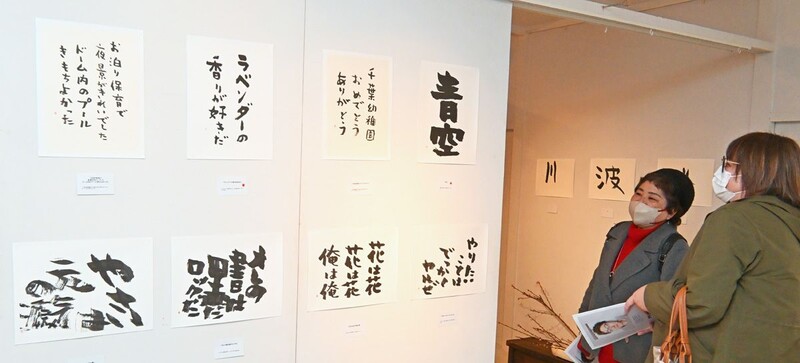 お泊り保育で
夜景がきれいでした
ドーム内のプール
きもちよかった
ラベンダーの
香りが好きだ
千葉幼稚園
おめでとう
ありがとう
青空
川
波
やさい
元
オレの
書は
黒だ
ロックだ
花は花
花は花
俺は俺
やりたい
ことは
でっかく
やれぜ